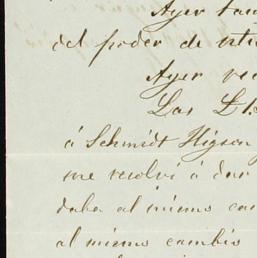 Ayer
del poder de
Ayer
Las £
á Schmidt Higson
me resolví á dar
daba al mismo
al mismo cambio